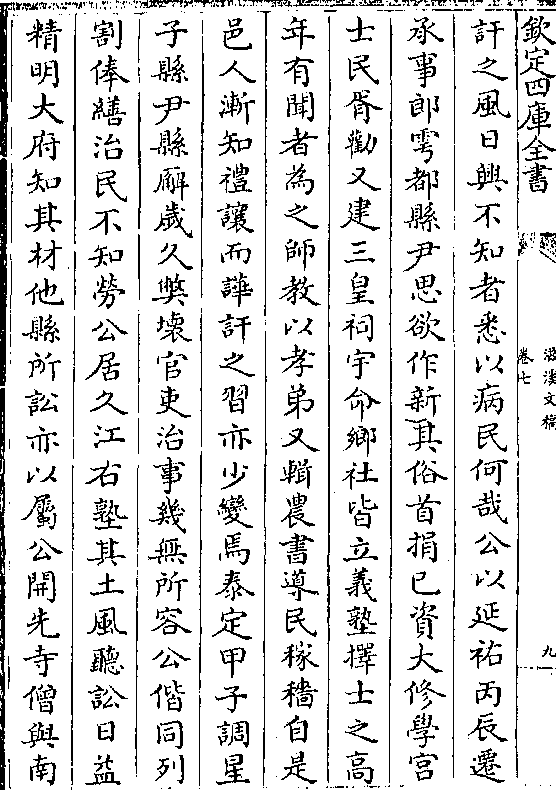 欽定四庫全書
滋溪文稿
卷七
九
訐之風日興不知者悉以病民何哉公以延祐丙辰遷
承事郎雩都縣尹思欲作新其俗首捐已資大修學宫
士民胥勸又建三皇祠宇命鄉社皆立義塾擇士之高
年有聞者為之師教以孝弟又輯農書導民稼穡自是
邑人漸知禮讓而譁訐之習亦少變焉泰定甲子調星
子縣尹縣廨歲久獘壞官吏治事幾無所容公偕同列
割俸繕治民不知勞公居久江右塾其土風聽訟日益
精明大府知其材他縣所訟亦以屬公開先寺僧與南